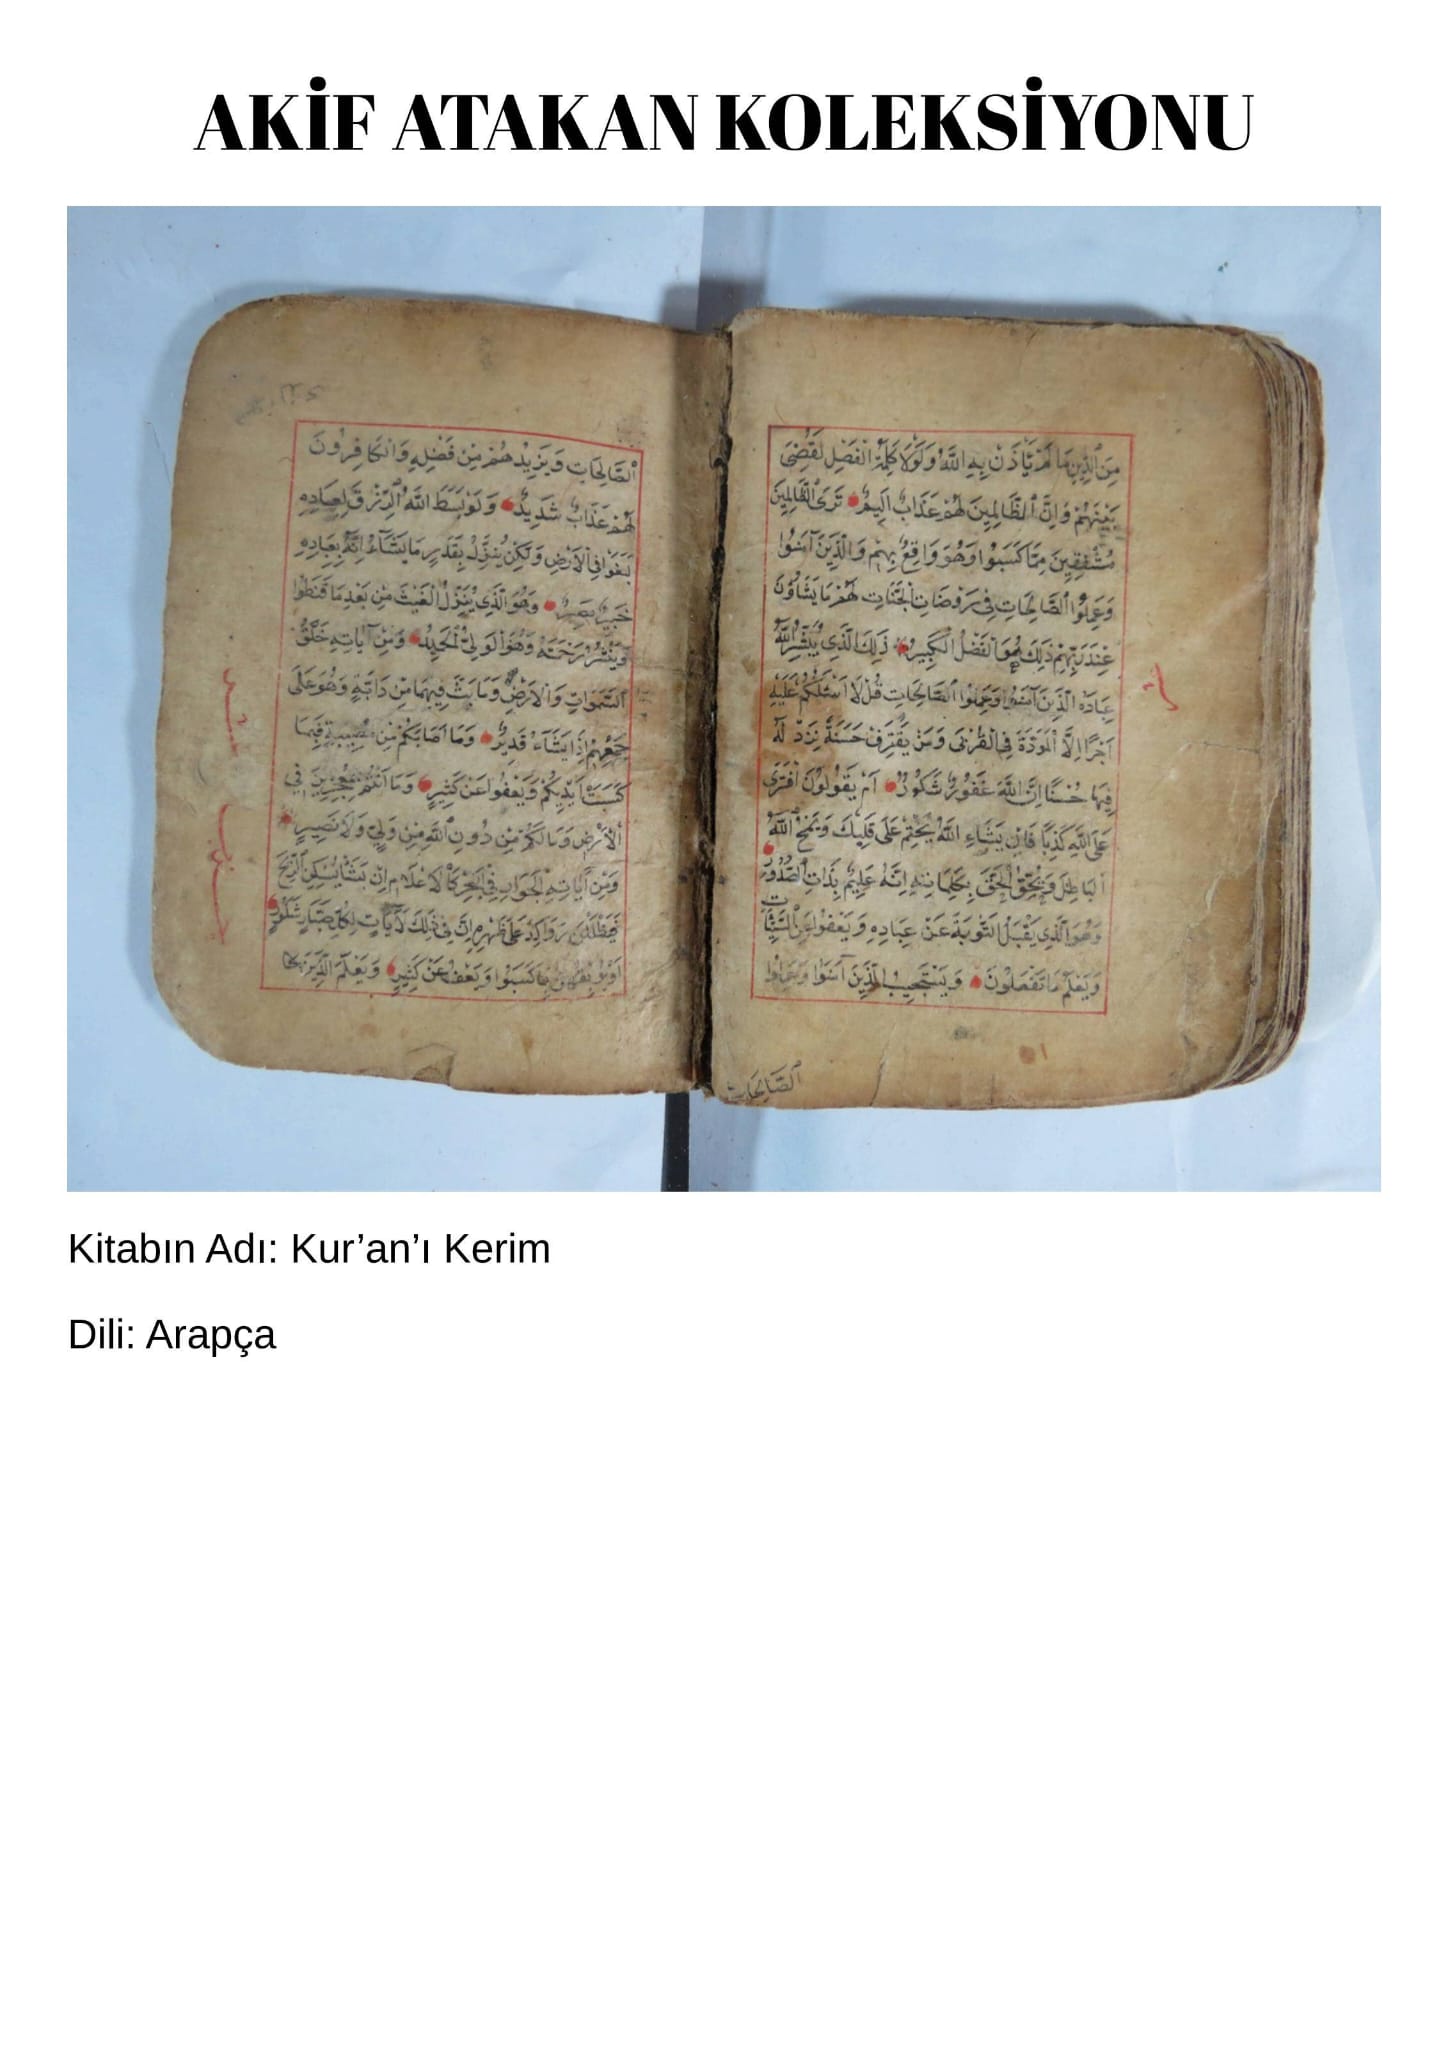 AKİF ATAKAN KOLEKSİYONU
مِنَ الَّذِينِ مَا لَمْ يَأْذَنْ بِهِ اللّٰهُ وَلَوْلَا كَلِمَةُ الْفَصْلِ لَقُضِىَ
بَيْنَهُمْ وَاِنَّ الظَّالِمِينَ لَهُمْ عَذَابٌ اَلِيمٌ تَرَى الظَّالِمِينَ
مُشْفِقِينَ مِمَّا كَسَبُوا وَهُوَ وَاقِعٌ بِهِمْ وَالَّذِينَ آمَنُوا
وَعَمِلُوا الصَّالِحَاتِ فِى رَوْضَاتِ الْجَنَّاتِ لَهُمْ مَا يَشَاؤُنَ
عِنْدَ رَبِّهِمْ ذٰلِكَ هُوَ الْفَضْلُ الْكَبِيرُ ذٰلِكَ الَّذِى يُبَشِّرُ اللّٰهُ
عِبَادَهُ الَّذِينَ آمَنُوا وَعَمِلُوا الصَّالِحَاتِ قُلْ لَا اَسْئَلُكُمْ عَلَيْهِ
اَجْرًا اِلَّا الْمَوَدَّةَ فِى الْقُرْبَى وَمَنْ يَقْتَرِفْ حَسَنَةً نَزِدْ لَهُ
فِيهَا حُسْنًا اِنَّ اللّٰهَ غَفُورٌ شَكُورٌ اَمْ يَقُولُونَ افْتَرَى
عَلَى اللّٰهِ كَذِبًا فَاِنْ يَشَاءِ اللّٰهُ يَخْتِمْ عَلَى قَلْبِكَ وَيَمْحُ اللّٰهُ
الْبَاطِلَ وَيُحِقُّ الْحَقَّ بِكَلِمَاتِهِ اِنَّهُ عَلِيمٌ بِذَاتِ الصُّدُورِ
وَهُوَ الَّذِى يَقْبَلُ التَّوْبَةَ عَنْ عِبَادِهِ وَيَعْفُوا عَنِ السَّيِّئَاتِ
وَيَعْلَمُ مَا تَفْعَلُونَ وَيَسْتَجِيبُ الَّذِينَ آمَنُوا وَعَمِلُوا
الصَّالِحَاتِ
الصَّالِحَاتِ وَيَزِيدُهُمْ مِنْ فَضْلِهِ وَالْكَافِرُونَ
لَهُمْ عَذَابٌ شَدِيدٌ وَلَوْ بَسَطَ اللّٰهُ الرِّزْقَ لِعِبَادِهِ
لَبَغَوْا فِى الْاَرْضِ وَلٰكِنْ يُنَزِّلُ بِقَدَرٍ مَا يَشَاءُ اِنَّهُ بِعِبَادِهِ
خَبِيرٌ بَصِيرٌ وَهُوَ الَّذِى يُنَزِّلُ الْغَيْثَ مِنْ بَعْدِ مَا قَنَطُوا
وَيَنْشُرُ رَحْمَتَهُ وَهُوَ الْوَلِىُّ الْحَمِيدُ وَمِنْ آيَاتِهِ خَلْقُ
السَّمٰوَاتِ وَالْاَرْضِ وَمَا بَثَّ فِيهِمَا مِنْ دَابَّةٍ وَهُوَ عَلَى
جَمْعِهِمْ اِذَا يَشَاءُ قَدِيرٌ وَمَا اَصَابَكُمْ مِنْ مُصِيبَةٍ فَبِمَا
كَسَبَتْ اَيْدِيكُمْ وَيَعْفُوا عَنْ كَثِيرٍ وَمَا اَنْتُمْ بِمُعْجِزِينَ فِى
الْاَرْضِ وَمَا لَكُمْ مِنْ دُونِ اللّٰهِ مِنْ وَلِىٍّ وَلَا نَصِيرٍ
وَمِنْ آيَاتِهِ الْجَوَارِ فِى الْبَحْرِ كَالْاَعْلَامِ اِنْ يَشَاْ يُسْكِنِ الرِّيحَ
فَيَظْلَلْنَ رَوَاكِدَ عَلَى ظَهْرِهِ اِنَّ فِى ذٰلِكَ لَآيَاتٍ لِكُلِّ صَبَّارٍ شَكُورٍ
اَوْ يُوبِقْهُنَّ بِمَا كَسَبُوا وَيَعْفُ عَنْ كَثِيرٍ وَيَعْلَمَ الَّذِينَ
Kitabın Adı: Kur’an’ı Kerim
Dili: Arapça